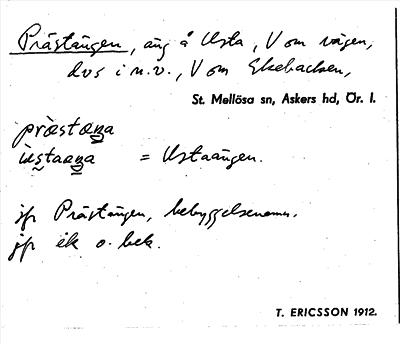 Prästängen, äng å Usta, V om vägen,
dvs i n.v., V om Ekebacken,
St. Mellösa sn, Askers hd, Ör. l.
präst
= Ustaängen.
jfr Prästängen, bebyggelsenamn.
jfr ek o. bek.
T. ERICSSON 1912.